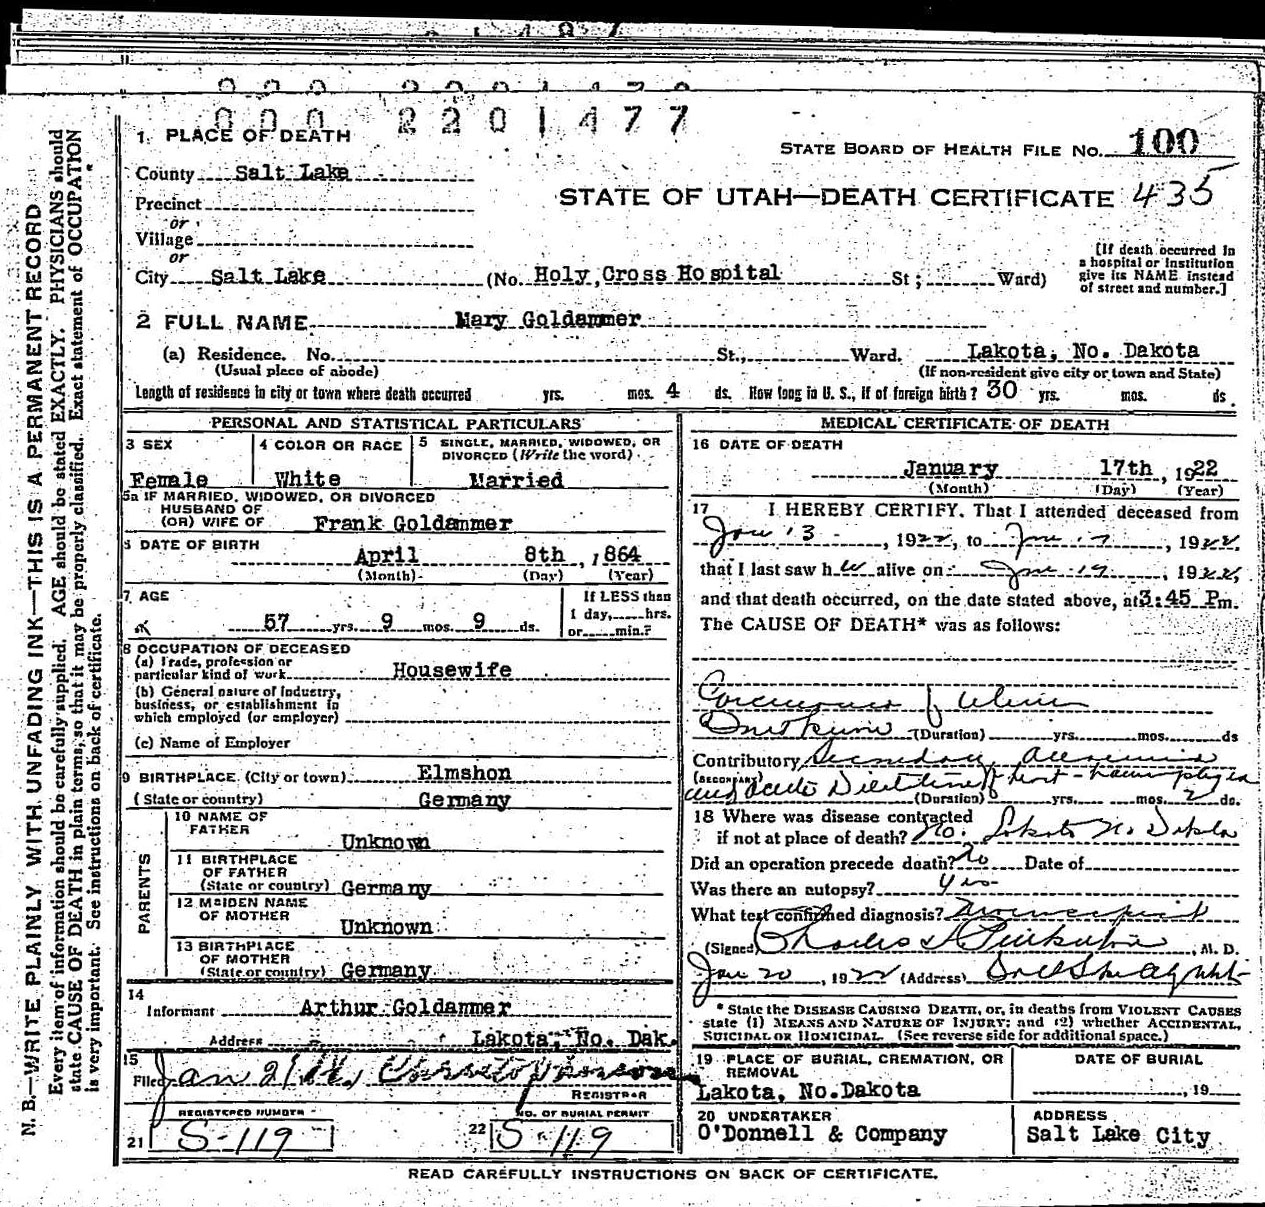 000 2201477
1. PLACE OF DEATH
STATE BOARD OF HEALTH FILE No. 100
County Salt Lake
STATE OF UTAH—DEATH CERTIFICATE 435
Precinct
or
Village
or
City Salt Lake (No. Holy Cross Hospital St; Ward)
[If death occurred in a hospital or institution give its NAME instead of street and number.]
2 FULL NAME Mary Goldammer
(a) Residence. No. St., Ward. Lakota, No. Dakota
(Usual place of abode) (If non-resident give city or town and State)
Length of residence in city or town where death occurred yrs. mos. 4 ds. How long in U. S., if of foreign birth? 30 yrs. mos. ds.
PERSONAL AND STATISTICAL PARTICULARS
3 SEX
Female
4 COLOR OR RACE
White
5 SINGLE, MARRIED, WIDOWED, OR DIVORCED (Write the word)
Married
5a IF MARRIED, WIDOWED, OR DIVORCED
HUSBAND OF
(OR) WIFE OF Frank Goldammer
6 DATE OF BIRTH
April 8th, 1864
(Month) (Day) (Year)
7 AGE
57 yrs. 9 mos. 9 ds.
If LESS than
1 day, hrs.
or min.?
8 OCCUPATION OF DECEASED
(a) Trade, profession or
particular kind of work Housewife
(b) General nature of Industry,
business, or establishment in
which employed (or employer)
(c) Name of Employer
9 BIRTHPLACE (City or town) Elmshon
(State or country) Germany
PARENTS
10 NAME OF
FATHER Unknown
11 BIRTHPLACE
OF FATHER
(State or country) Germany
12 MAIDEN NAME
OF MOTHER Unknown
13 BIRTHPLACE
OF MOTHER
(State or country) Germany
14
Informant Arthur Goldammer
Address Lakota, No. Dak.
15
Filed Jan 21
REGISTRAR
REGISTERED NUMBER
21 S-119
NO. OF BURIAL PERMIT
22 S-119
MEDICAL CERTIFICATE OF DEATH
16 DATE OF DEATH
January 17th, 1922
(Month) (Day) (Year)
17 I HEREBY CERTIFY, That I attended deceased from
Jan 13, 1922, to Jan 17, 1922,
that I last saw her alive on Jan 17, 1922,
and that death occurred, on the date stated above, at 3:45 Pm.
The CAUSE OF DEATH* was as follows:
Carcinoma of Uterus
(Duration) yrs. mos. ds
Contributory Secondary
(SECONDARY)
and acute Dilatation of
(Duration) yrs. mos. 2 ds.
18 Where was disease contracted
if not at place of death? No. Lakota N. Dakota
Did an operation precede death? No Date of
Was there an autopsy? Yes
What test confirmed diagnosis?
(Signed) Charles , M. D.
Jan 20, 1922 (Address)
* State the DISEASE CAUSING DEATH, or, in deaths from VIOLENT CAUSES
state (1) MEANS AND NATURE OF INJURY; and (2) whether ACCIDENTAL,
SUICIDAL OR HOMICIDAL. (See reverse side for additional space.)
19 PLACE OF BURIAL, CREMATION, OR
REMOVAL
Lakota, No.Dakota
DATE OF BURIAL
, 19
20 UNDERTAKER
O'Donnell & Company
ADDRESS
Salt Lake City
READ CAREFULLY INSTRUCTIONS ON BACK OF CERTIFICATE.
N. B.—WRITE PLAINLY WITH UNFADING INK—THIS IS A PERMANENT RECORD
Every item of information should be carefully supplied. AGE should be stated EXACTLY. PHYSICIANS should
state CAUSE OF DEATH in plain terms, so that it may be properly classified. Exact statement of OCCUPATION
is very important. See instructions on back of certificate.